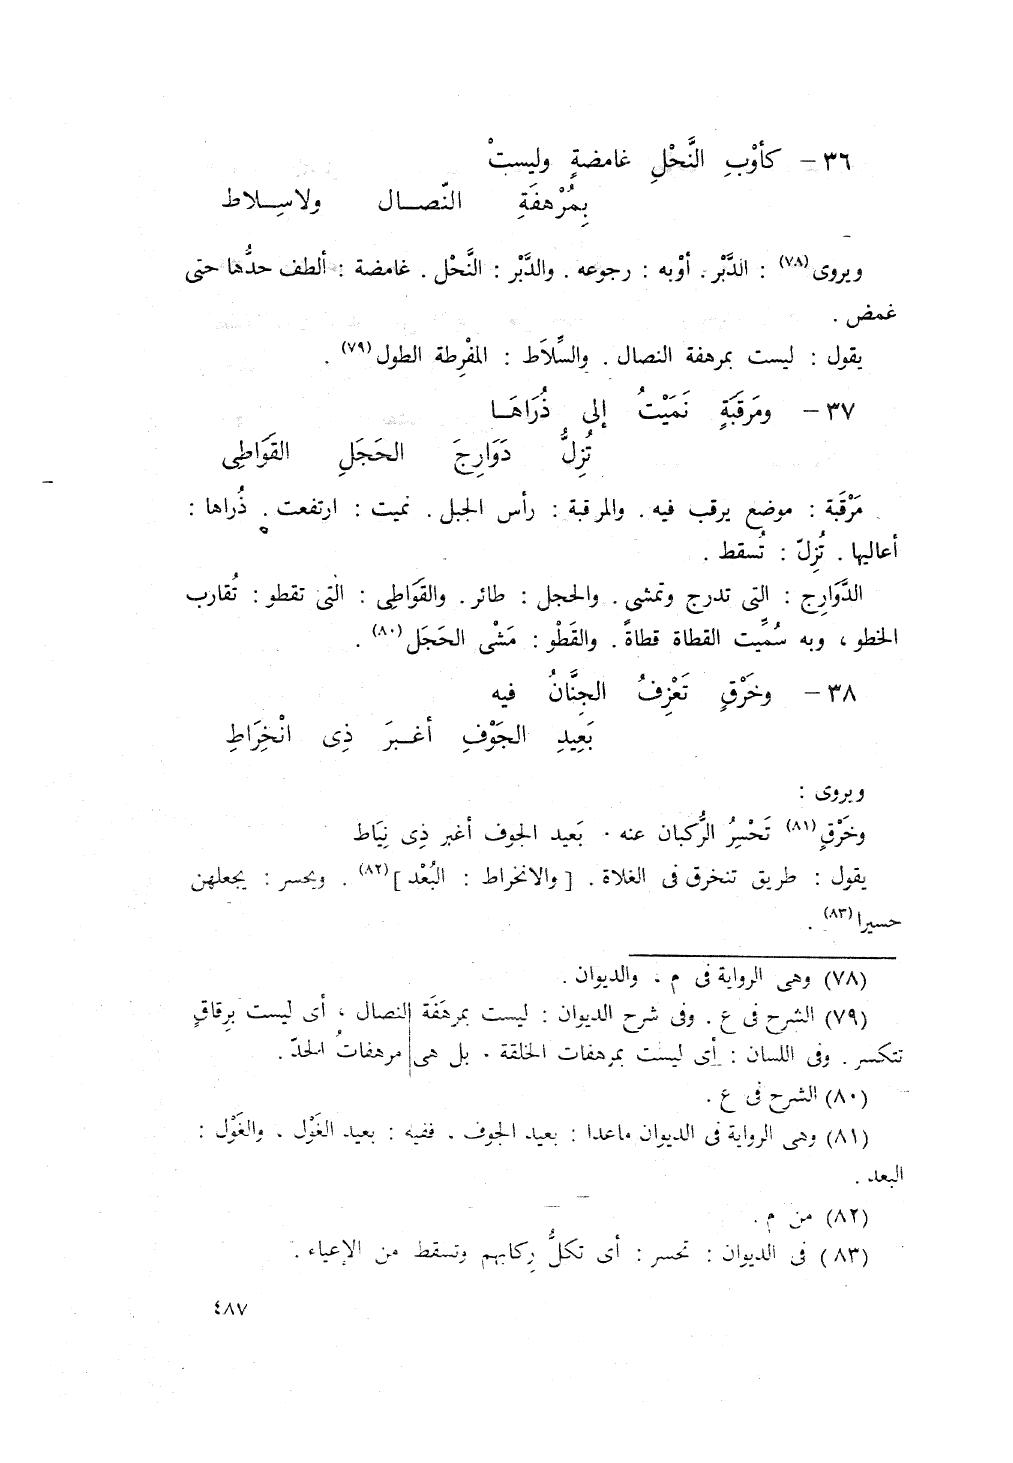 ٣٦ – كأوْبِ النَّحْلِ غامضةٍ وليستْ
بِمُرْهفَةِ النّصـال ولاسِـلاط
ويروى(٧٨) : الدَّبْر . أوْبه : رجوعه . والدَّبْر : النَّحْل . غامضة : ألطف حدُّها حتى
غمض .
يقول : ليست بمرهفة النصال . والسِّلاَط : المفْرِطة الطول(٧٩) .
٣٧ – ومَرقَبَةٍ نَمَيْتُ إلى ذُرَاهَـا
تُزِلُّ دَوَارِجَ الحَجَلِ القَوَاطِى
مَرْقَبة : موضع يرقب فيه . والمرقبة : رأس الجبل . نميت : ارتفعت . ذُراها :
أعاليها . تُزِلّ : تُسقط .
الدَّوَارِج : التى تدرج وتمشى . والحجل : طائر . والقَوَاطِى : التى تقطو : تُقارب
الخطو ، وبه سُمِّيت القطاة قطاةً . والقَطْو : مَشْى الحَجَل(٨٠) .
٣٨ – وخَرْقٍ تَعْزِفُ الجِنَّانُ فيه
بَعِيدِ الجَوْفِ أغـبرَ ذِى انْخِرَاطِ
ويروى :
وخَرْقٍ(٨١) تَحْسِرُ الرُّكبان عنه . بَعيد الجوف أغبر ذِى نِيَاط
يقول : طريق تنخرق فى الغلاة . [ والانخراط : البُعْد ](٨٢) . ويحسر : يجعلهن
حسيرا(٨٣) .
(٧٨) وهى الرواية فى م ، والديوان .
(٧٩) الشرح فى ع . وفى شرح الديوان : ليست بمرهَفَة النصال ، أى ليست برِقاقٍ
تتكسر . وفى اللسان : أى ليست بمرهفات الخلقة . بل هى مرهفاتُ الحدّ .
(٨٠) الشرح فى ع .
(٨١) وهى الرواية فى الديوان ماعدا : بعيد الجوف . ففيه : بعيد الغَوْل . والغَوْل :
البعد .
(٨٢) من م .
(٨٣) فى الديوان : تحسر : أى تكلُّ رِكابهم وتسقط من الإعياء .
٤٨٧